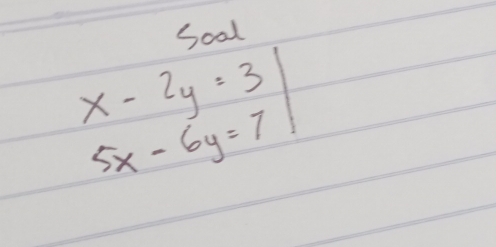 Soal
x - 2y = 3
5x - 6y = 7